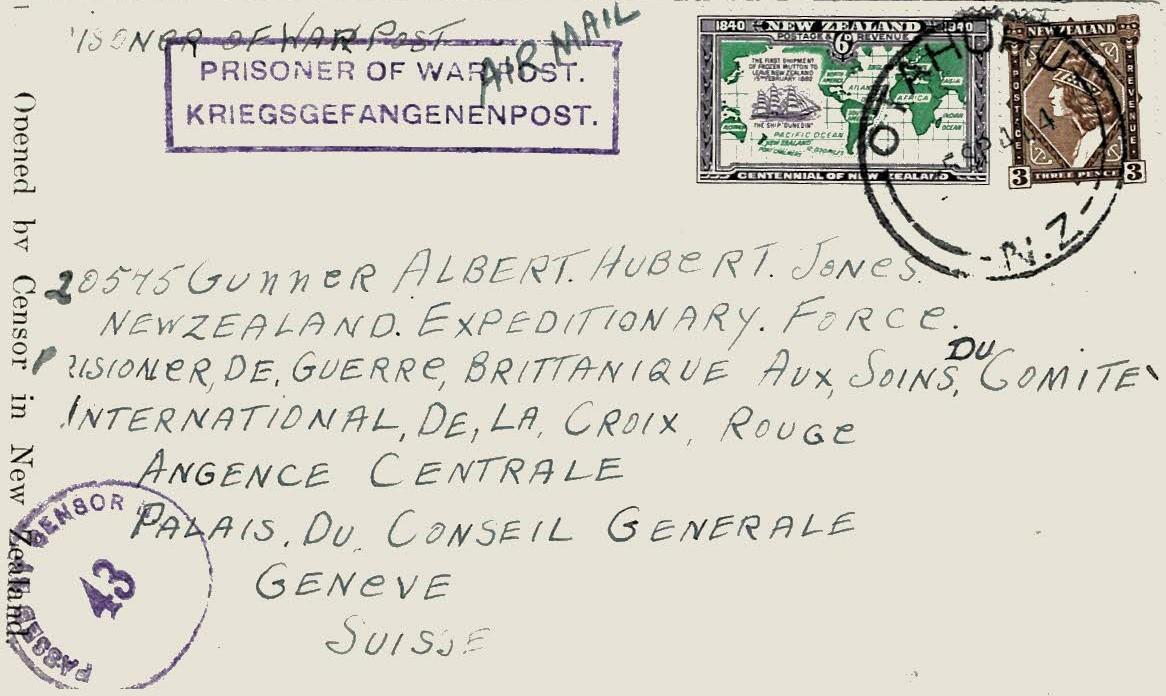 'ISONER OF WAR POST
AIR MAIL
PRISONER OF WAR POST.
KRIEGSGEFANGENENPOST.
1840 NEW ZEALAND 1940
POSTAGE & REVENUE
6D
THE FIRST SHIPMENT
OF FROZEN MUTTON TO
LEAVE NEW ZEALAND
15TH FEBRUARY 1882
THE SHIP "DUNEDIN"
AFRICA
INDIAN
OCEAN
PACIFIC OCEAN
NEW ZEALAND
PORT CHALMERS
CENTENNIAL OF NEW ZEALAND
NEW ZEALAND
POSTAGE
REVENUE
3 THREE PENCE 3
OTAHUHU
N.Z.
20575 GUNNER ALBERT. HUBERT. JONES.
NEWZEALAND. EXPEDITIONARY. FORCE.
PRISIONER, DE, GUERRE, BRITTANIQUE AUX, SOINS, DU COMITE
INTERNATIONAL, DE, LA, CROIX, ROUGE
ANGENCE CENTRALE
PALAIS. DU. CONSEIL GENERALE
GENEVE
SUISSE
Opened by Censor in New Zealand.
PASSED CENSOR
43